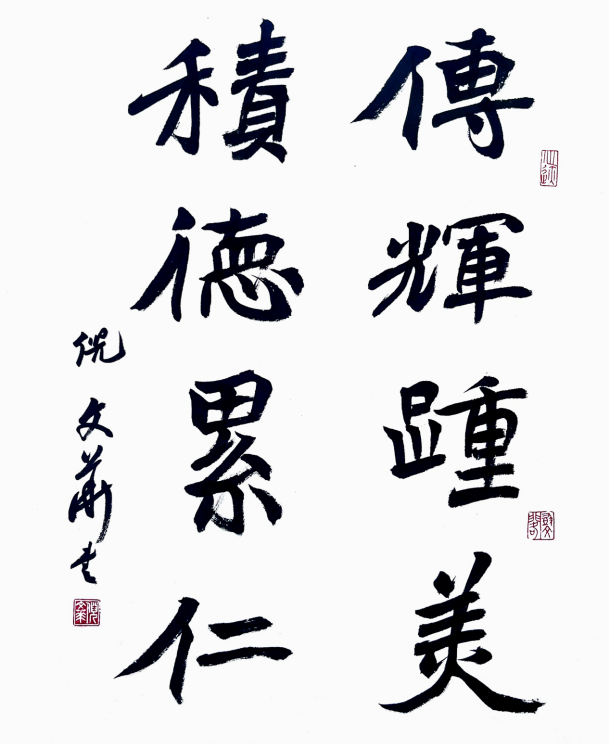 傳輝踵美
積德累仁
倪文華书